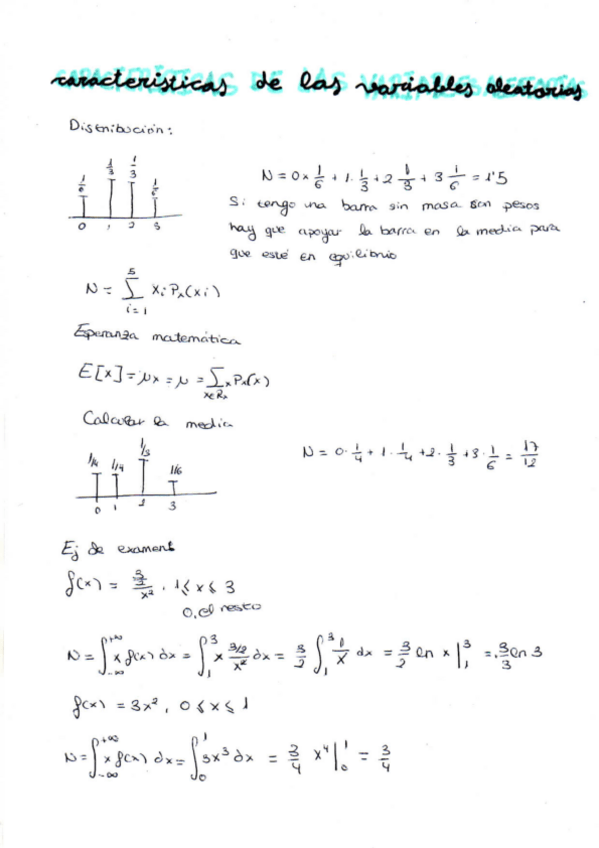 características de las variables aleatorias
Distribución:
1/6 1/3 1/3 1/6
0 1 2 3
N = 0 × 1/6 + 1 · 1/3 + 2 1/3 + 3 1/6 = 1'5
Si tengo una barra sin masa son pesos
hay que apoyar la barra en la media para
que esté en equilibrio
N = ∑_{i=1}^{5} xi Px(xi)
Esperanza matemática
E[x] = μx = μ = ∑_{x∈Rx} x Px(x)
Calcular la media
1/4 1/4 1/3 1/6
0 1 2 3
N = 0 · 1/4 + 1 · 1/4 + 2 · 1/3 + 3 · 1/6 = 17/12
Ej de examen:
f(x) = x², 1 ≤ x ≤ 3
0, el resto
N = ∫_{-∞}^{+∞} x f(x) dx = ∫_1^3 x (3/2)/x² dx = 3/2 ∫_1^3 1/x dx = 3/2 ln x |_1^3 = 3/3 ln 3
f(x) = 3x², 0 ≤ x ≤ 1
N = ∫_{-∞}^{+∞} x f(x) dx = ∫_0^1 3x³ dx = 3/4 x⁴ |_0^1 = 3/4